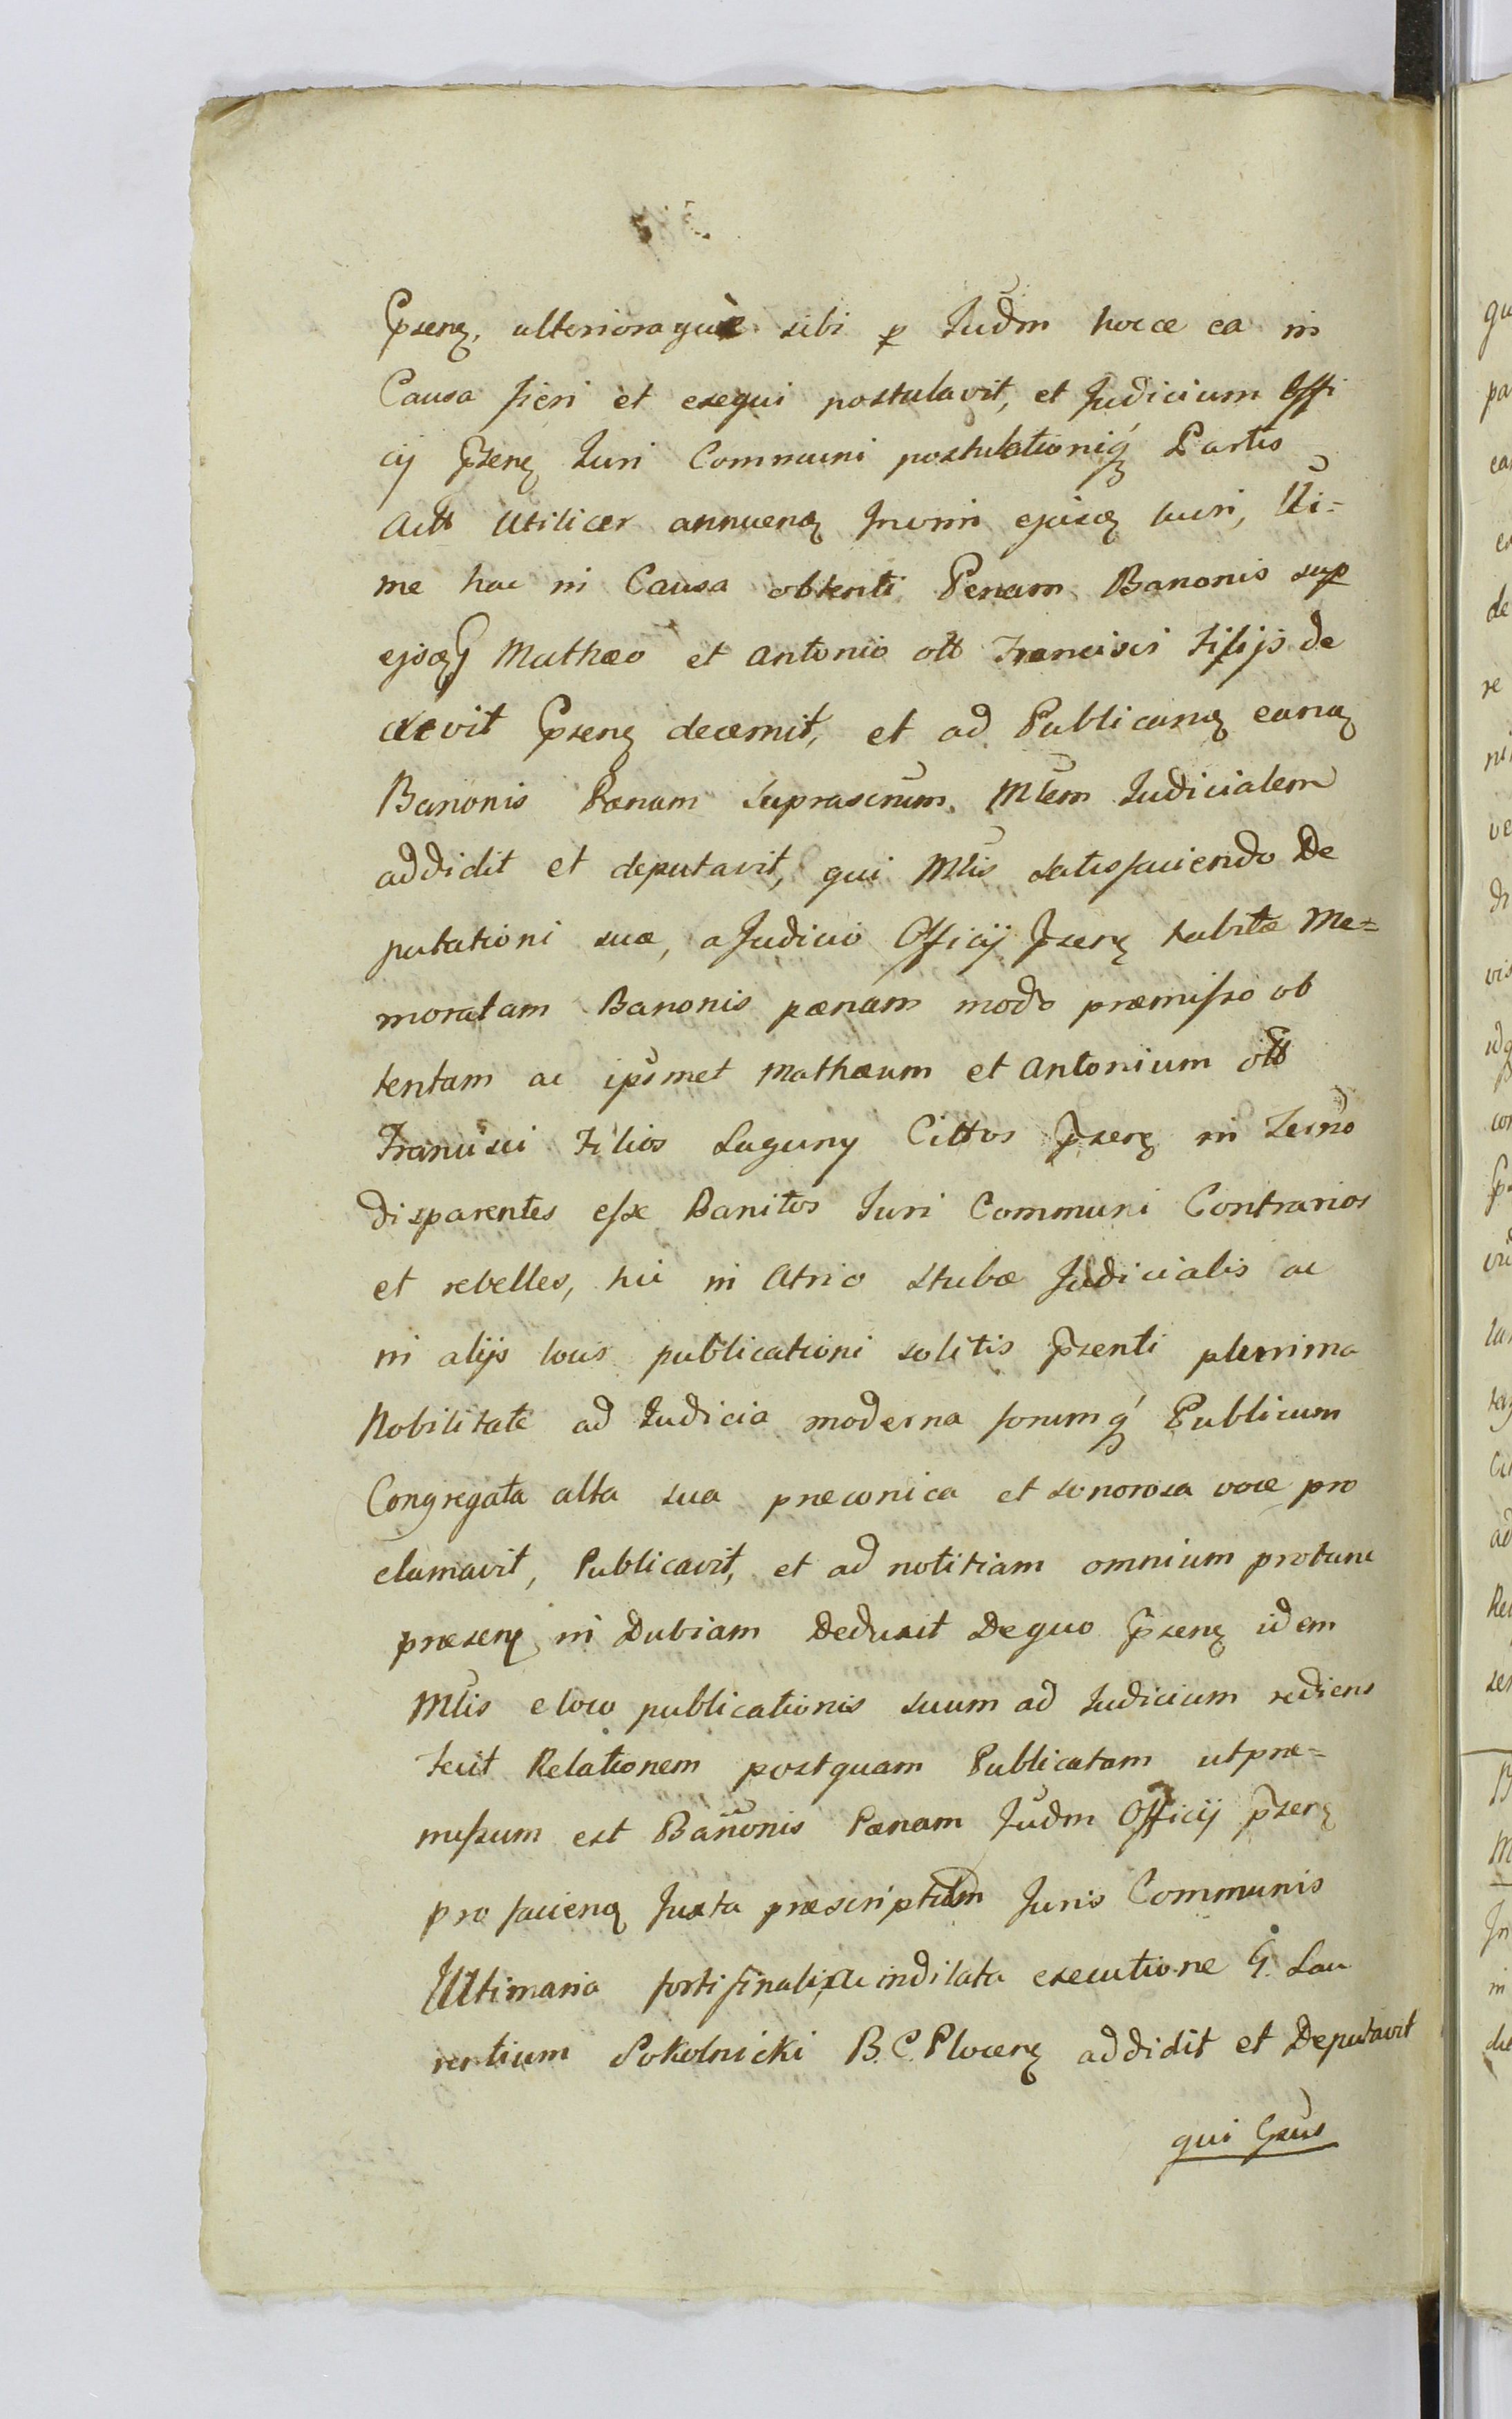 Gpseng, ulterioraque sibi p Judm hocce ea in
Causa fieri et exequi postulavit, et Judicium Offi
cij Pseng Juri Communi postulationiq Partis
Actt Utilicer annueng lucri, Ui=
me hac in Causa obtenti Penam Banonis sup
Mathæo et Antonio ott Francisci Filijs de
crevit Gpseng decernit, et ad Publicang eang
Banonis Pænam suprascrum Mlem Judicialem
addidit et deputavit, qui Mlis satisfaciendo De
putationi suæ, a Judicio Officij Pseng habitæ Me=
moratam Banonis pænam modo præmisso ob
tentam ac ipsmet Mathæum et Antonium ott
Francisci Filios Laguny Cittos Pseng in Termo
disparentes esse Banitos Juri Communi Contrarios
et rebelles, hic in Atrio Stubæ Judicialis ac
in alijs locis publicationi solitis Psenti plenima
Nobilitate ad Judicia moderna forumq Publicum
Congregata alta sua præconica et sonorosa voce pro
clamavit, Publicavit, et ad notitiam omnium protunc
præseng in Dubiam Deduxit Dequo Pseng idem
Mlis e loco publicationis suum ad Judicium rediens
fecit Relationem postquam Publicatam utpræ=
missum est Banonis Pænam Judm Officij Pseng
pro facieng Juxta præscriptum Juris Communis
Ultimaria forti finali indilata executione G. Lau
rentium Sokolnicki B. C. Ploceng addidit et Deputavit
qui Gsus
gu
pa
ea
de
re
ve
di
vis
idq
co
ad
Re
ser
B
M
in